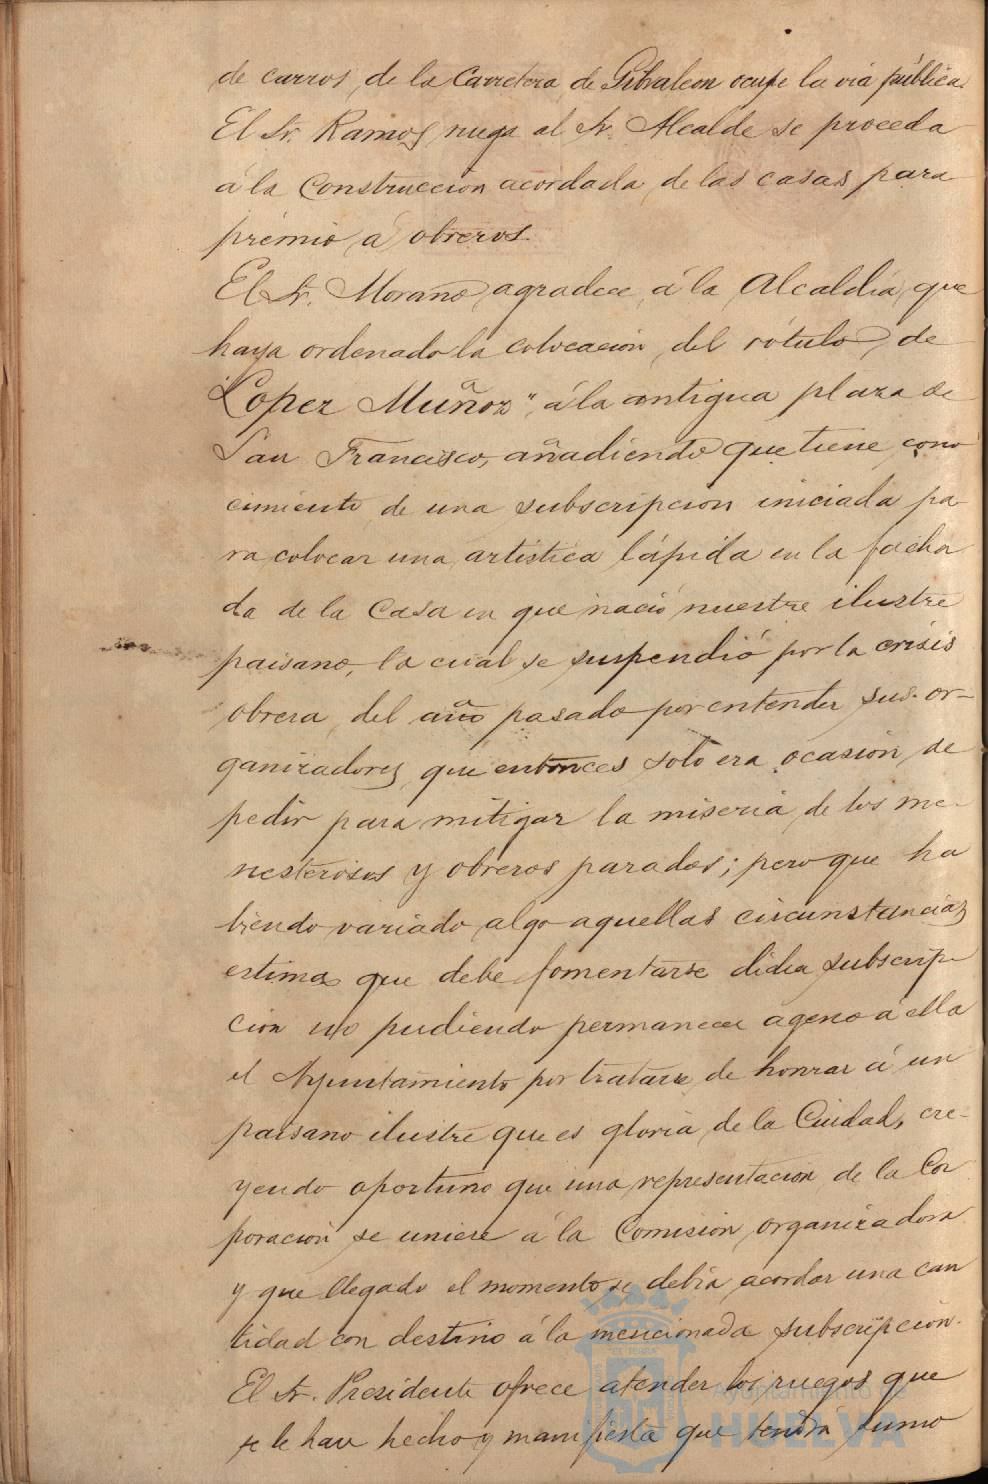 de carros, de la Carretera de Gibraleon ocupe la via pública.
El Sr. Ramos, ruega al Sr. Alcalde se proceda
á la Construccion acordada, de las casas para
premio á obreros.
El Sr. Moraño, agradece, á la Alcaldía, que
haya ordenado la colocación, del rótulo, de
"Lopez Muñoz", á la antigua plaza de
San Francisco, añadiendo que tiene, cono
cimiento, de una subscripcion iniciada pa-
ra colocar una artistica lápida en la facha
da de la Casa en que nació nuestre ilustre
paisano, la cual se suspendió por la crisis
obrera, del año pasado por entender sus or-
ganizadores, que entonces solo era ocasión, de
pedir para mitigar la miseria, de los me-
nesterosos y obreros parados; pero que ha
biendo variado, algo aquellas circunstancias
estima que debe fomentarse dicha subscrip-
cion no pudiendo permanecer ageno á ella
el Ayuntamiento por tratarse de honrar á un
paisano ilustre que es gloria, de la Ciudad, cre-
yendo oportuno que una representación, de la Cor
poración se uniese á la Comisión organizadora
y que llegado el momento se debía, acordar una can
tidad con destino á la mencionada subscripcion.
El Sr. Presidente ofrece atender los ruegos que
se le han hecho y manifiesta que tendrá sumo
Ayuntamiento de
HUELVA